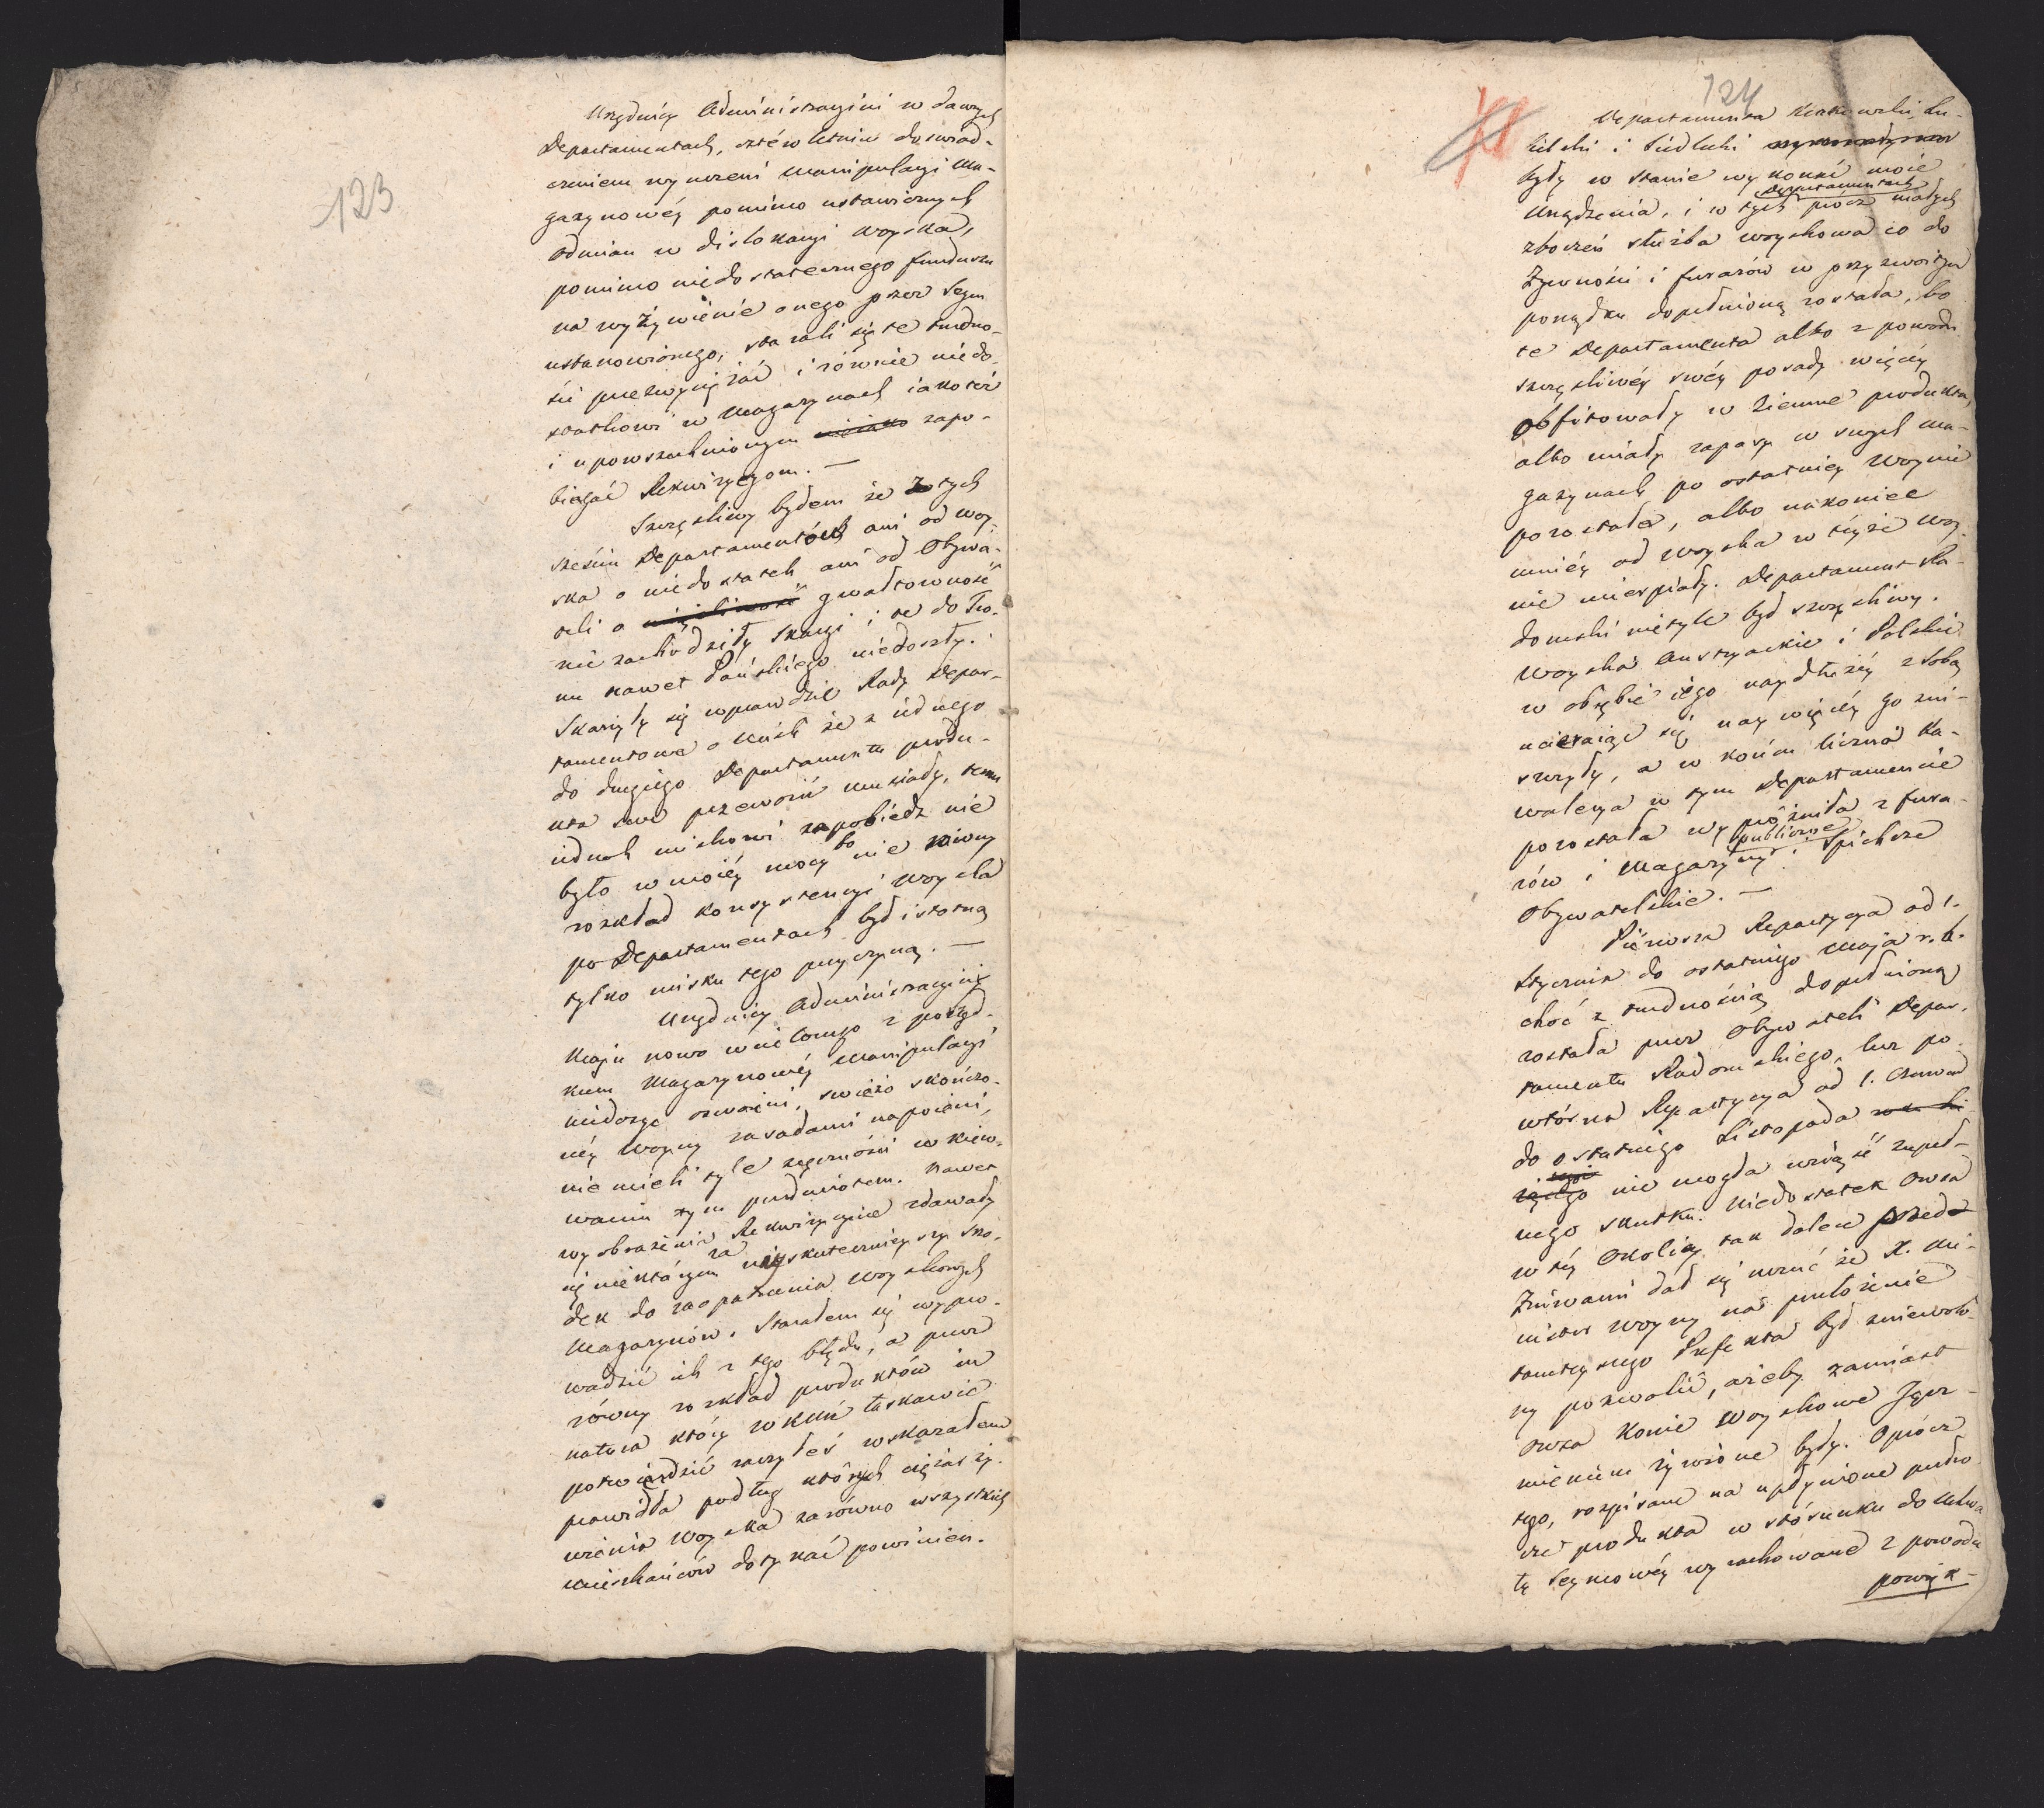 123
Urzędnicy Administracyini w dawnych
Departamentach, czteroletnim doświad-
czeniem wyuczeni manipulacyi Ma-
gazynowéy pomimo ustawicznych
odmian w dislokacyi woyska,
pomimo niedostatecznego funduszu
na wyżywienie onego przez Seym
ustanowionego, starali się te trudno-
ści przezwyciężać i równie niedo-
statkowi w Magazynach iakoteż
i upowszechnionym zapo-
biegać Rekwizycyom. —
Szczęśliwy byłem że z tych
sześciu Departamentów ani od woy-
ska o niedostatek ani od Obywa-
teli o gwałtowność
nie zachodziły skargi i te do Tro-
nu nawet Pańskiego niedoszły.
Skarżyły się wprawdzie Rady Depar-
tamentowe o ucisk że z iednego
do drugiego Departamentu produ-
kta swe przewozić musiały, temu
iednak uciskowi zapobiedz nie
było w moiéy mocy bo nie równy
rozkład konsystencyi woyska
po Departamentach był istotną
tylko ucisku tego przyczyną. —
Urzędnicy Administracyini
Kraju nowo wcielonego z porząd-
kiem Magazynowéy manipulacyi
niedosyć oswoieni, swieżo skończo-
néy Woyny zasadami napoieni,
nie mieli tyle zręczności w kiero-
waniu tym przedmiotem. Nawet
wyobrażenia Rekwizycyine zdawały
się niektórym za nayskutecznieyszy śro-
dek do zaopatrzenia woyskowych
Magazynów. Starałem się wypro-
wadzić ich z tego błędu, a przez
równy rozkład produktów in
natura który WKMć łaskawie
potwierdzić raczyłeś wskazałem
prawidła podług których ciężar ży-
wienia Woyska zarówno wszystkich
mieszkańców dotykać powinien.
124
Departamenta Krakowski, Lu-
belski i Siedlecki
były w stanie wykonać moie
Urządzenia, i w tych Departamentach prócz małych
zboczeń służba woyskowa co do
żywności i furażów w przyzwoitym
porządku dopełnioną została, bo
te Departamenta albo z powodu
szczęśliwéy swéy posady więcéy
obfitowały w ziemne produkta,
albo miały zapasy w swych ma-
gazynach po ostatniéy Woynie
pozostałe, albo nakoniec
mniéy od Woyska w téyże woy-
nie ucierpiały. Departament Ra-
domski nietyle był szczęśliwy.
Woyska Austryackie i Polskie
w obrębie iego naydłużéy z sobą
ucieraiąc się naywięcéy go zni-
szczyły, a w końcu liczna Ka-
waleya w tym Departamencie
pozostała wypróżniła z fura-
żów i Magazyny publiczne i Spichrze
Obywatelskie. —
Pierwsza Repartycya od 1.
Stycznia do ostatniego Maja r. b.
choć z trudnością dopełnioną
została przez Obywateli Depar-
tamentu Radomskiego, lecz po-
wtórna Repartycya od 1. Czerwca
do ostatniego Listopada
nie mogła wziąść zupeł-
nego skutku. Niedostatek Owsa
w téy Okolicy tak dalece przed
Żniwami dał się uczuć że X. Mi-
nister Woyny na przełożenie
tamteyszego Prefekta był zniewolo-
ny pozwolić, ażeby zamiast
Owsa Konie Woyskowe Jęcz-
mieniem żywione były. Oprócz
tego, rozpisane na upłynione półro-
cze produkta w stósunku do Uchwa-
ły Seymowéy wyrachowane z powodu
powięk-